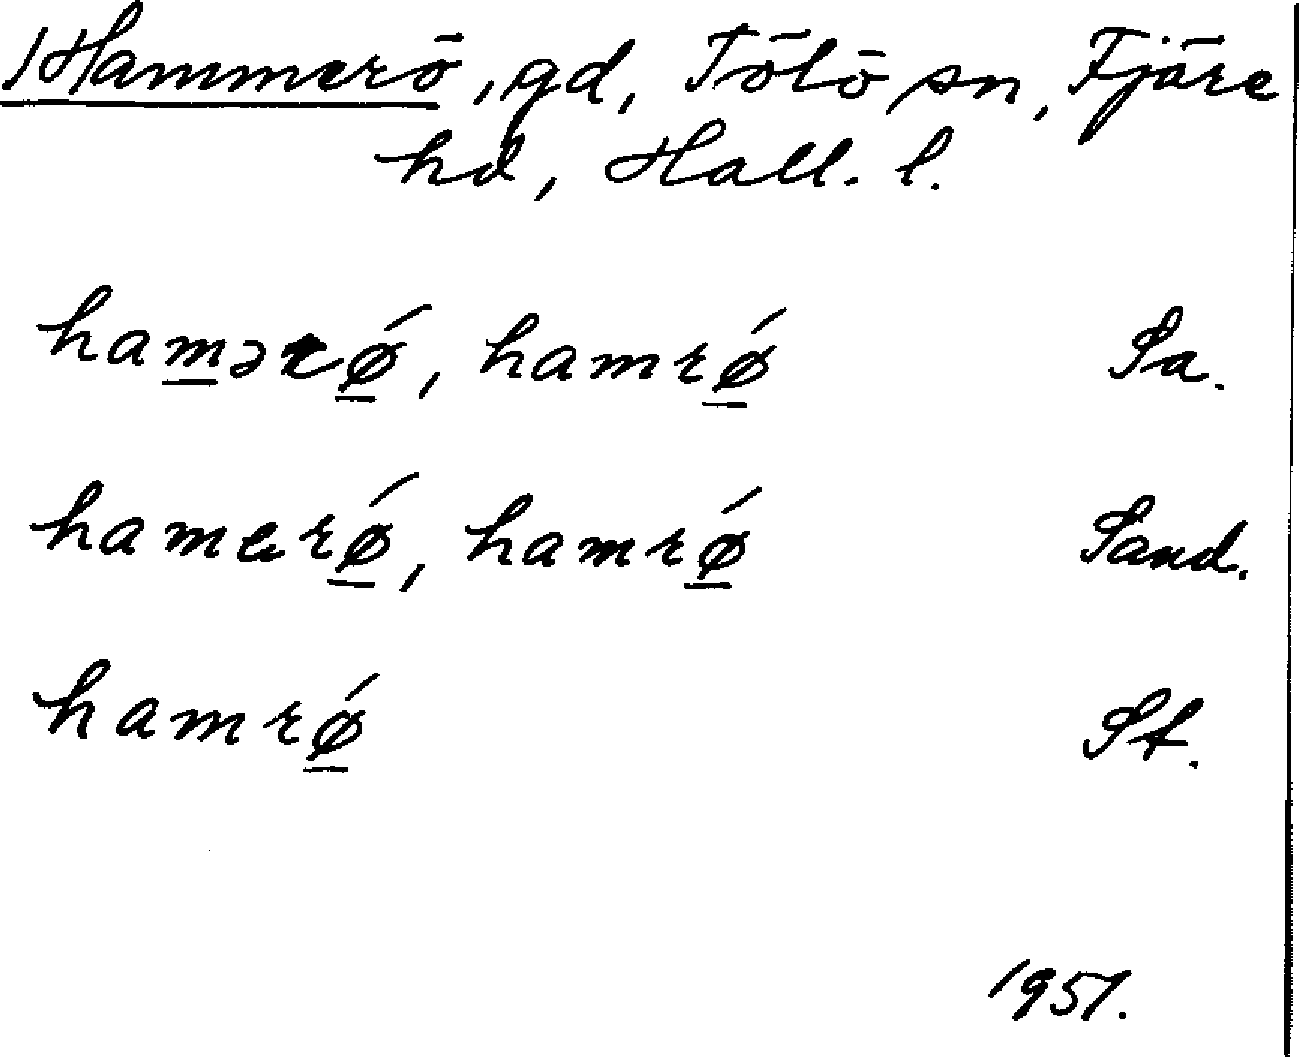 Hammerö, gd, Tölö sn, Fjäre
hd, Hall. l.
hamərǿ, hamrǿ Sa.
hamerǿ, hamrǿ Sand.
hamrǿ St.
1951.